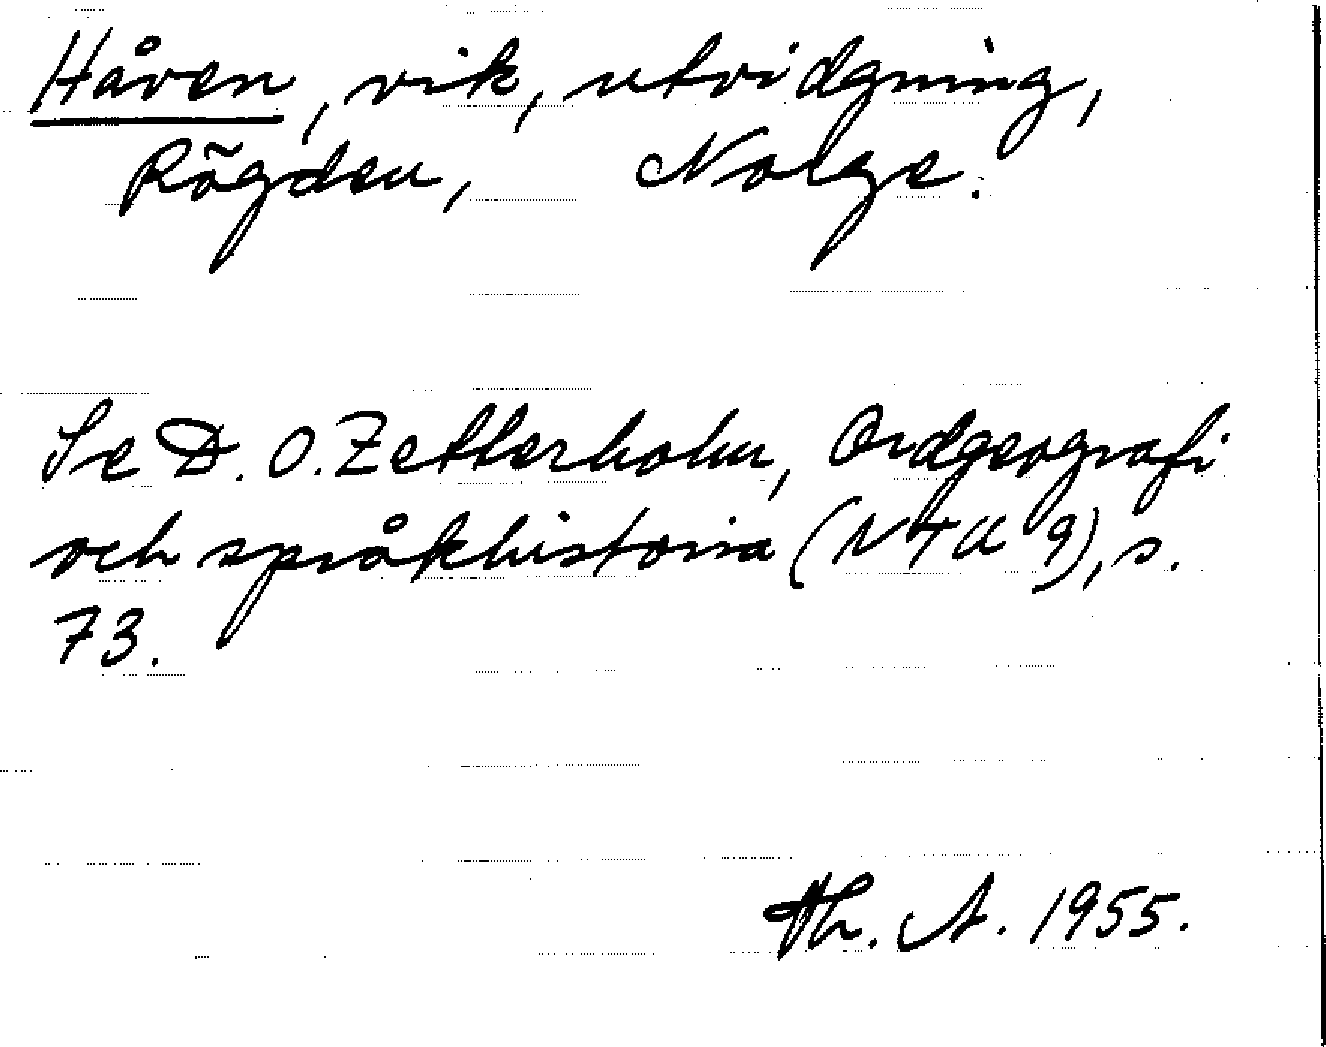 Håven, vik, utvidgning,
Rögden, Norge.
Se D. O. Zetterholm, Ordgeografi
och språkhistoria (NTU 9), s.
73.
Th. A. 1955.